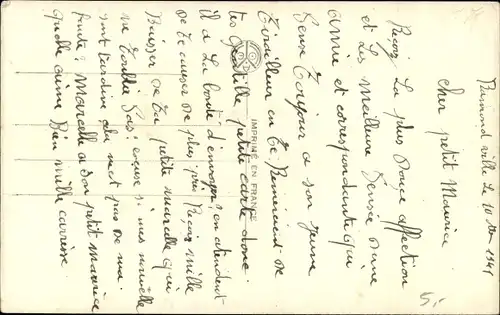 Ramond ville le 10 1941
Cher petit Maurice
Reçoy La plus Douce affection
et Les Meilleure Pensée d'une
amie et correspondante qui
Pense Toujour a son jeune
Tirailleur en Te Remerciant de
tes gentille petite carte donc
il a La bonté d'envoyer, en attendent
de Te causer de plus près Reçoy mille
Baisser de Ta petite Marcelle qui
ne T'oublie Pas. excuse si mes nouvelle
sont tardive cela n'est pas de ma
faute. Marcelle a son petit Maurice
quelle aime Bien mille caresse.
IMPRIMÉ EN FRANCE
5.-